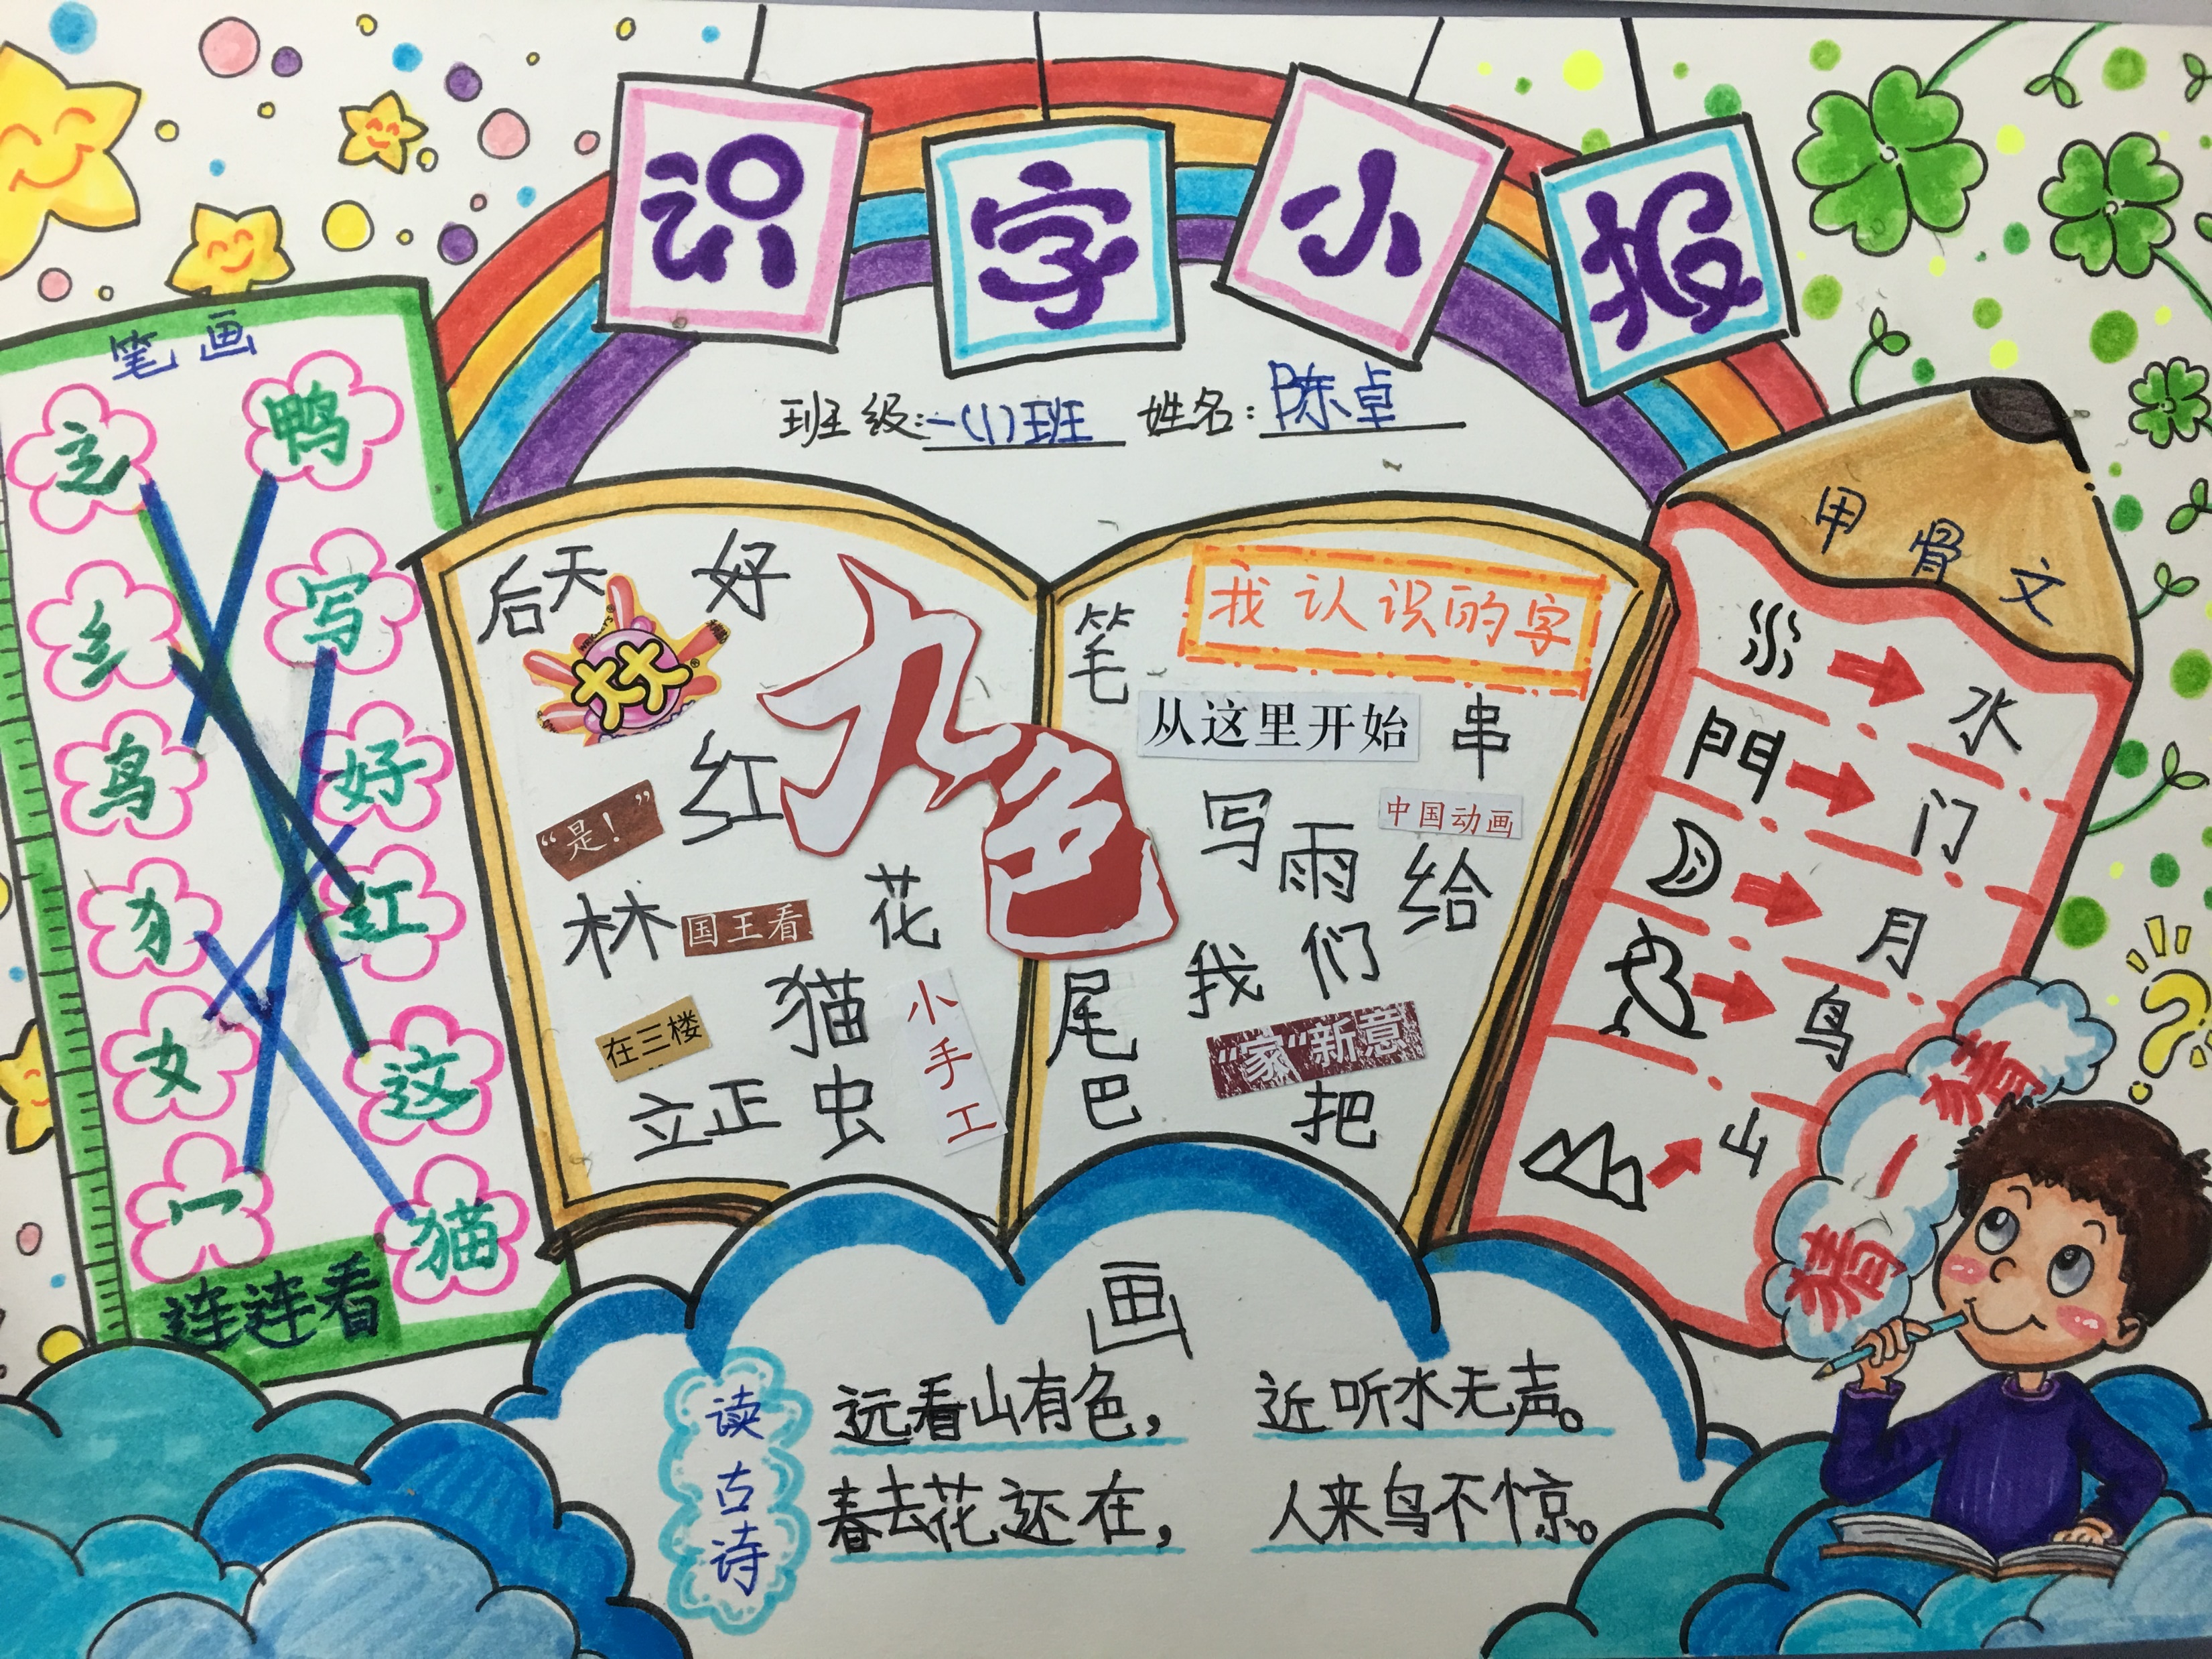 识字小报
班级：一(1)班 姓名：陈卓
笔画
辶 鸭
纟 写
鸟 好
犭 红
女 这
冖 猫
连连看
后天 好
XX
九色
红
“是！”
花
林 国王看
猫
在三楼
小手工
立正 虫
我认识的字
笔
从这里开始 串
中国动画
写 雨 给
我 们
尾巴
“家”新意
把
甲骨文
水
門 门
月
鸟
山
猜一猜
画
读古诗
远看山有色， 近听水无声。
春去花还在， 人来鸟不惊。